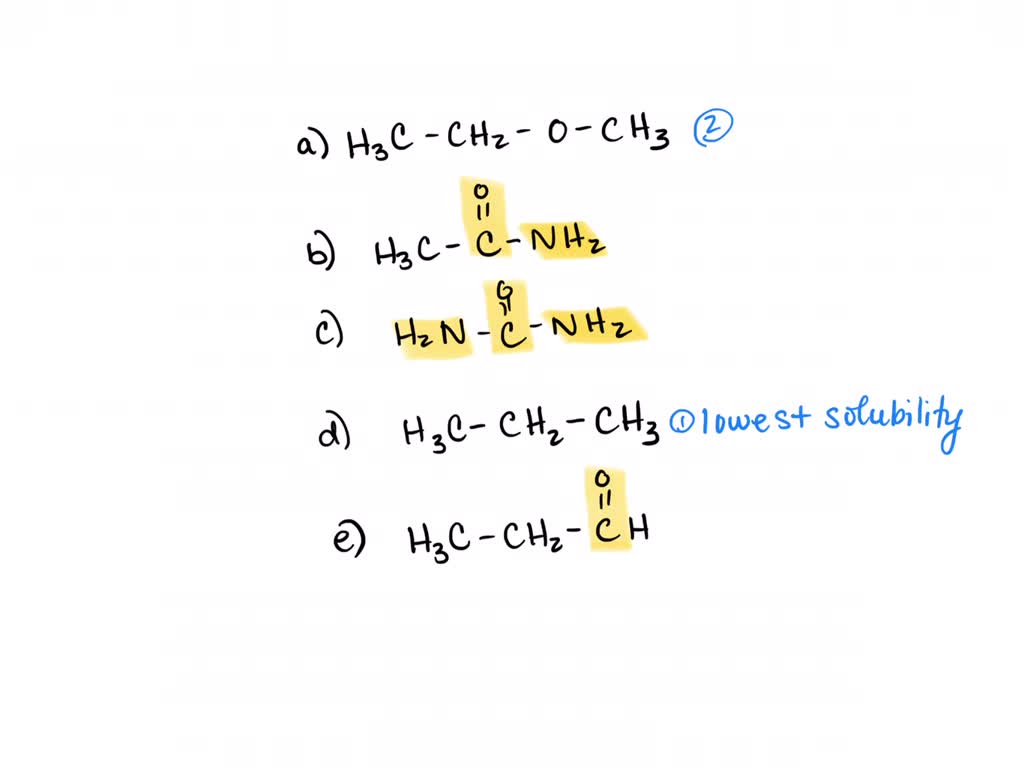 a) H₃C - CH₂ - O - CH₃ ②
O
||
b) H₃C - C - NH₂
O
||
c) H₂N - C - NH₂
d) H₃C - CH₂ - CH₃ ① lowest solubility
O
||
e) H₃C - CH₂ - C H